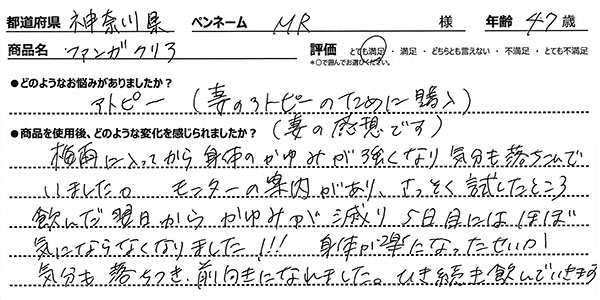 都道府県 神奈川県 ペンネーム MR 様 年齢 47歳
商品名 ファンガクリア 評価 とても満足 ・ 満足 ・ どちらとも言えない ・ 不満足 ・ とても不満足
*○で囲んでお選びください。
●どのようなお悩みがありましたか?
アトピー (妻のアトピーのために購入)
●商品を使用後、どのような変化を感じられましたか? (妻の感想です)
梅雨に入ってから身体のかゆみが強くなり気分も落ちこんで
いました。 モニターの案内があり、さっそく試したところ
飲んだ翌日からかゆみが減り5日目にはほぼ
気にならなくなりました!!! 身体が楽になったせいか
気分も落ちつき、前向きになれました。ひき続き飲んでいきます